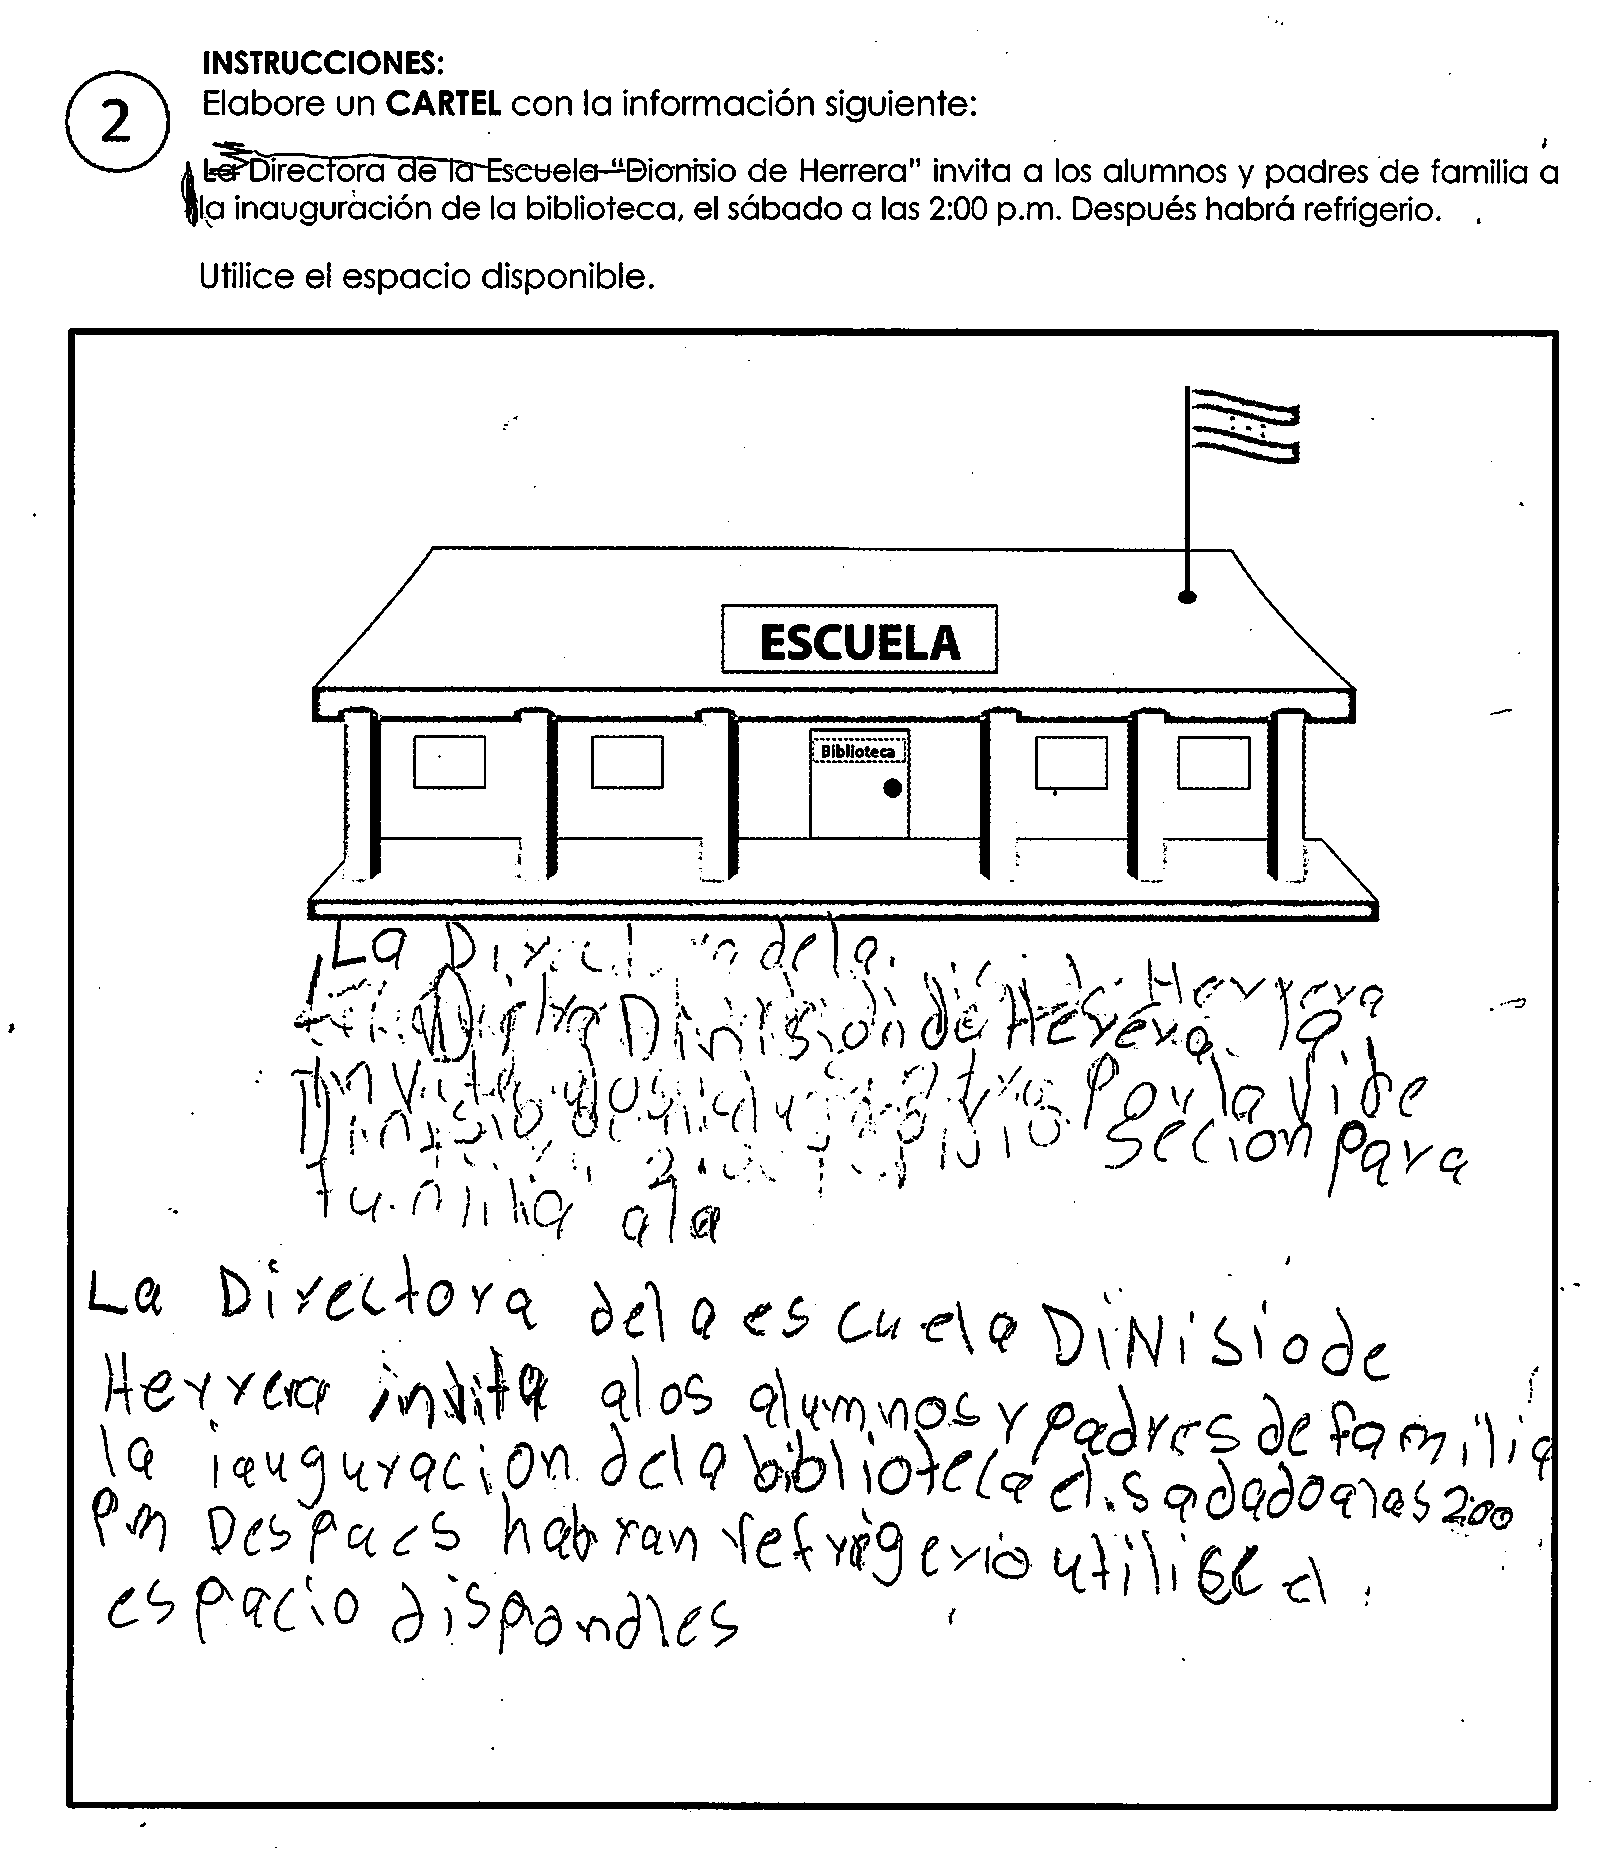 2
INSTRUCCIONES:
Elabore un CARTEL con la información siguiente:
La Directora de la Escuela "Dionisio de Herrera" invita a los alumnos y padres de familia a
la inauguración de la biblioteca, el sábado a las 2:00 p.m. Después habrá refrigerio.
Utilice el espacio disponible.
ESCUELA
Biblioteca
La dela Herrera
Dinision de Herera la
Por la Vide
secion para
ala
La Directora dela escuela DiNisiode
Herrera invita alos alumnos y padres de familia
la iauguracion dela biblioteca el sadado alas 2:00
Pm Despues habran refrigerio utilise el
espacio dispondles